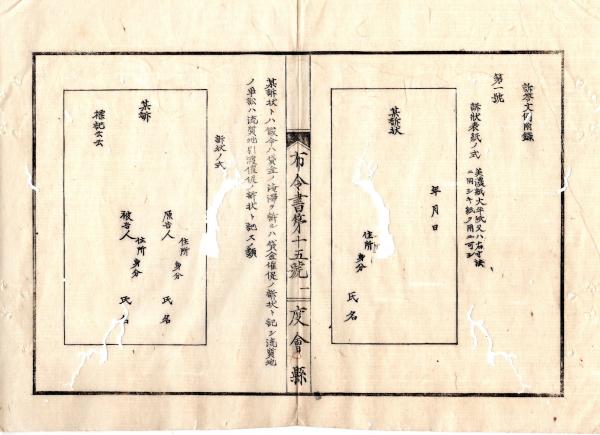 訴答文例附録
第一號
訴状表紙ノ式
美濃紙大半紙又ハ右寸法
ニ用シキ紙ヲ用ユ可シ
某訴状
年月日
住所
身分
氏名
布令書第十五號 一 度會縣
某訴状トハ假令ハ貸金ノ淹滞ヲ訴ルハ貸金催促ノ訴状ト記シ流質地
ノ争訟ハ流質地引渡催促ノ訴状ト記スノ類
訴状ノ式
某訴
標記云云
原告人
住所
身分
氏名
被告人
住所
身分
氏名